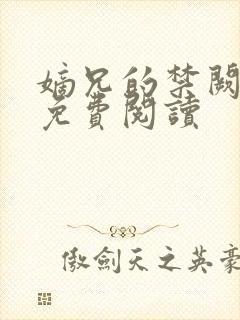 嫡兄的禁闕
免費閱讀
傲劍天之英豪